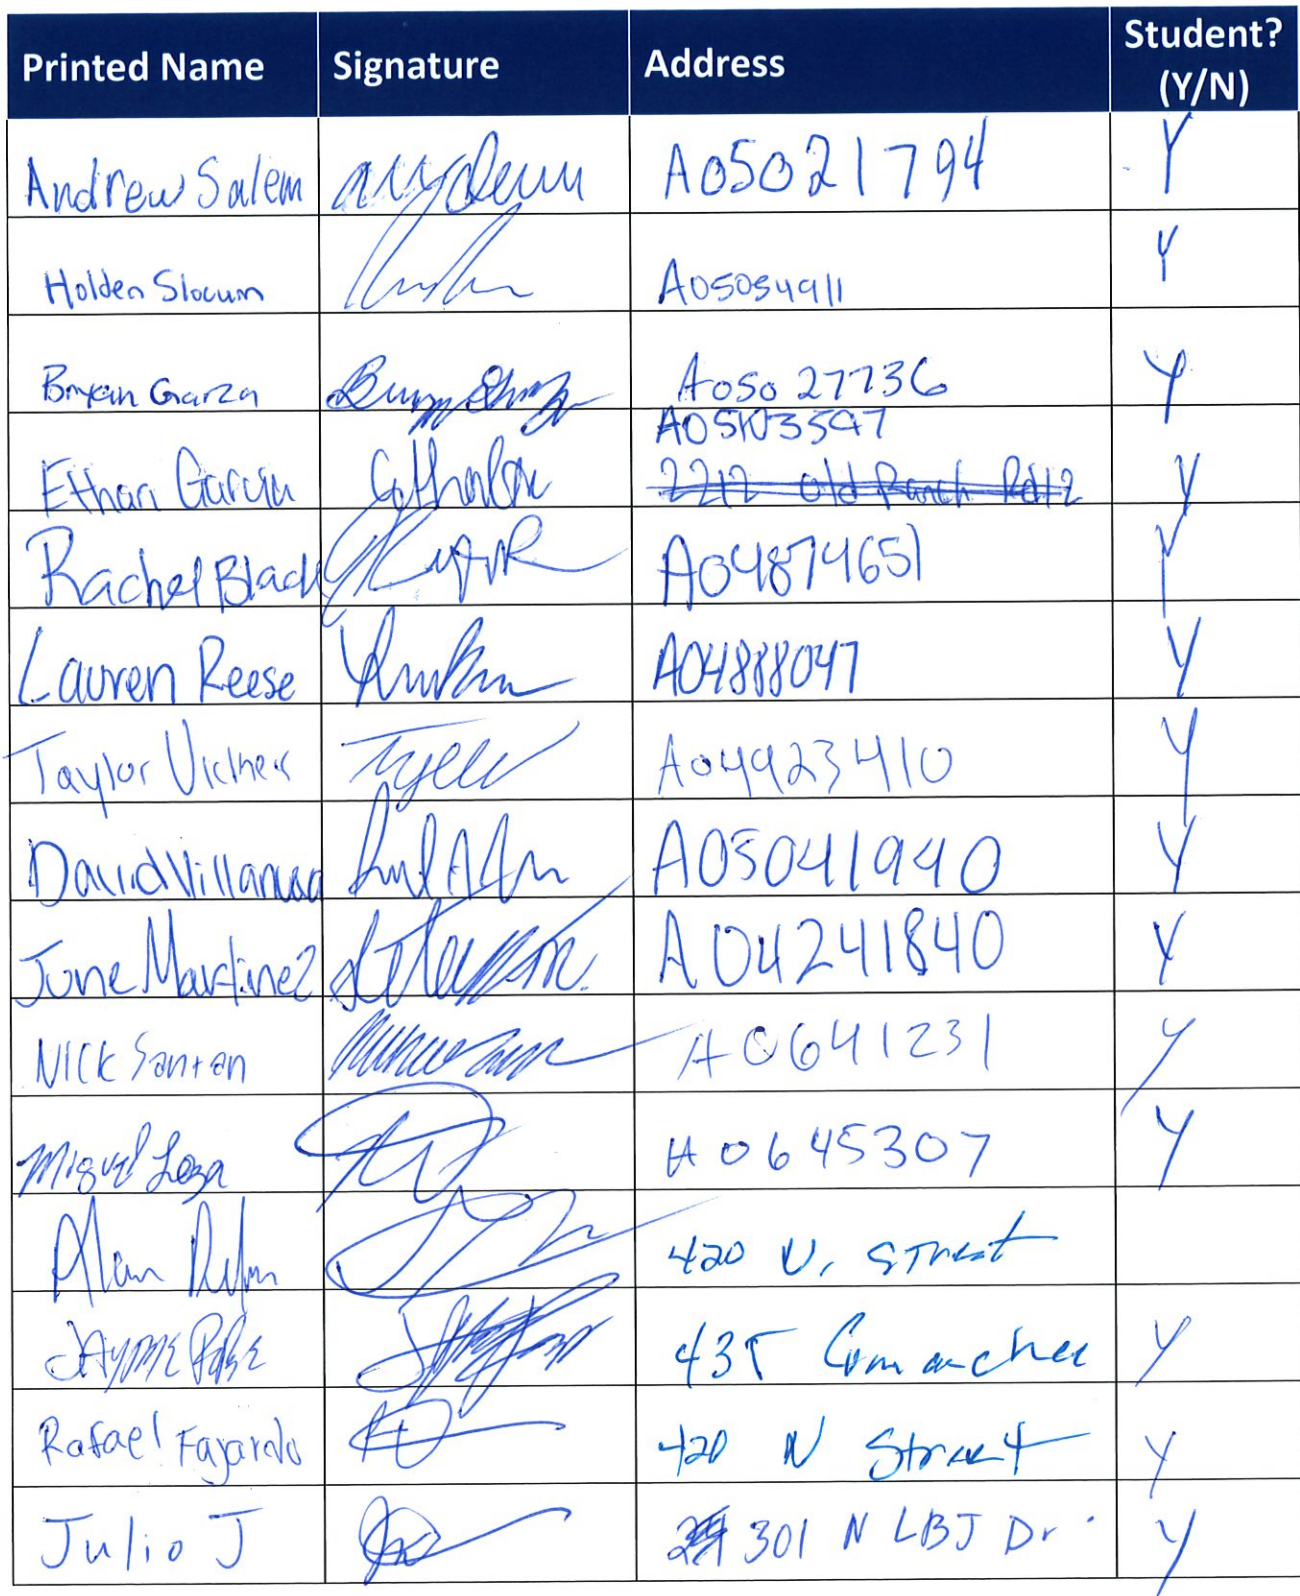 Printed Name Signature Address Student? (Y/N)
Andrew Salem A05021794 Y
Holden Slocum A05054911 Y
Bryan Garza A05027736 Y
A05103547
Ethan Garcia 2212 Old Ranch Rd 12 Y
Rachel Black A04874651 Y
Lauren Reese A04888047 Y
Taylor A04923410 Y
David Villanueva A05041940 Y
June Martinez A04241840 Y
Nick Santan A0641231 Y
Miguel Loza A0645307 Y
Alan 420 N. Street
Jayme 435 Comanchee Y
Rafael Fajardo 420 N Street Y
Julio J 301 N LBJ Dr. Y